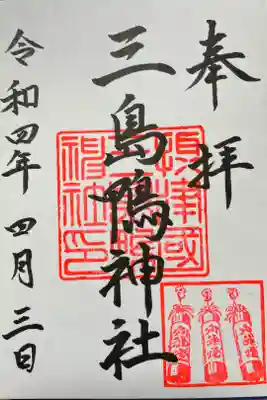 奉拝
三島鴨神社
令和四年 四月三日